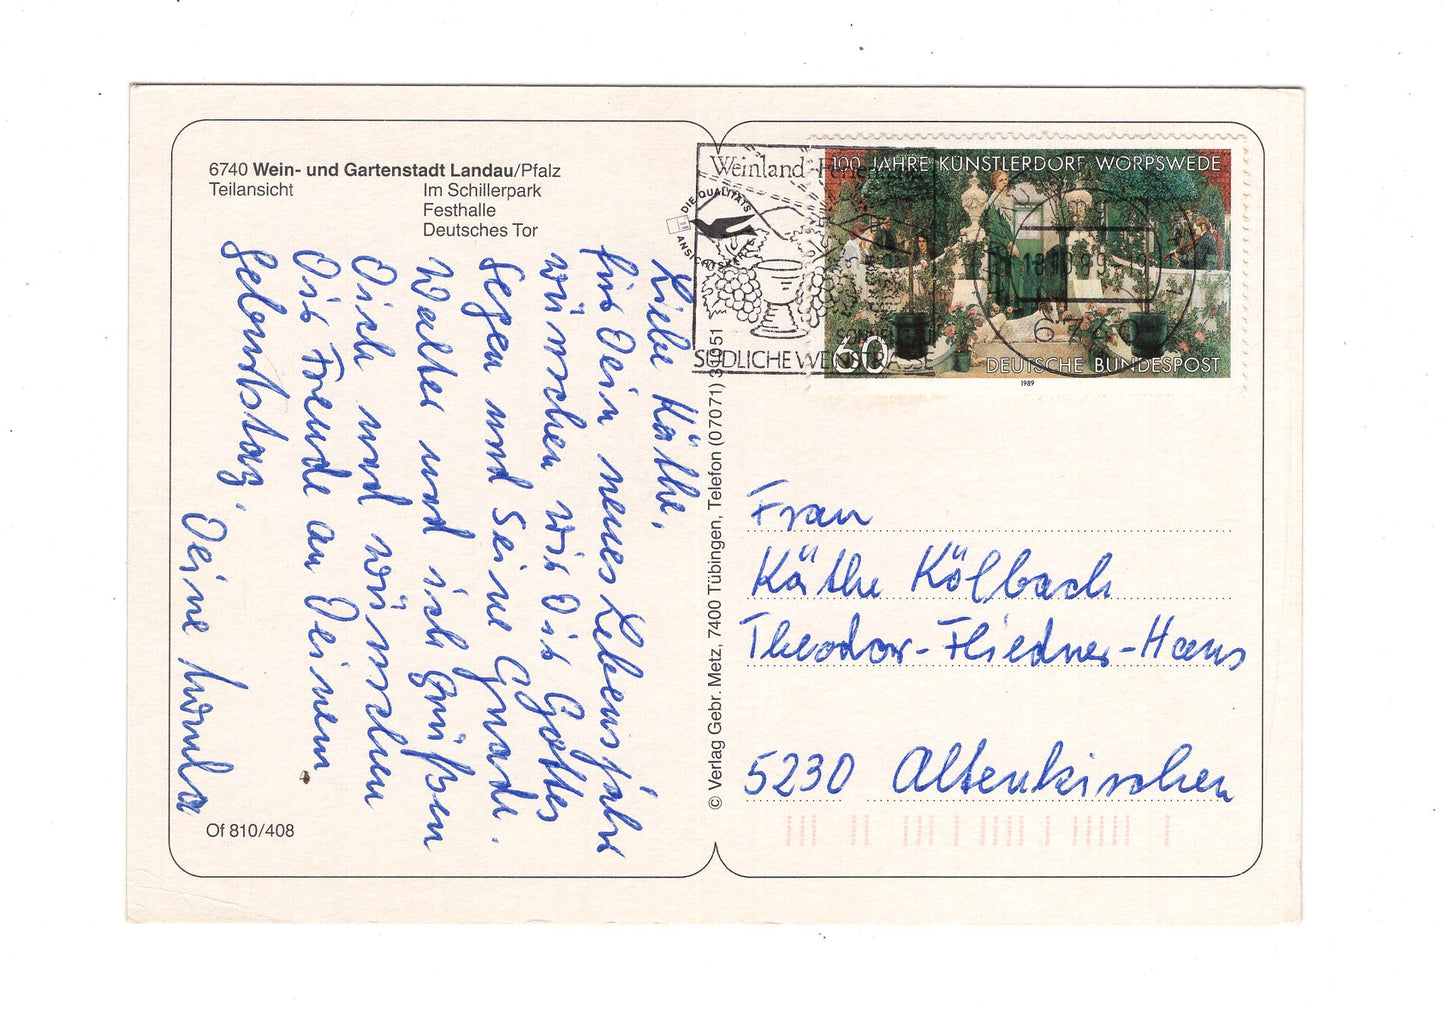 6740 Wein- und Gartenstadt Landau/Pfalz
Teilansicht
Im Schillerpark
Festhalle
Deutsches Tor
Liebe Käthe,
für Dein neues Lebensjahr
wünschen wir Dir Gottes
Segen und Seine Gnade.
Walter und ich grüßen
Dich und wünschen
Dir Freude an Deinem
Geburtstag.
Deine
Of 810/408
© Verlag Gebr. Metz, 7400 Tübingen, Telefon (07071) 31051
DIE QUALITÄTS
ANSICHTSKARTE
Weinland-
SÜDLICHE WEINSTRASSE
100 JAHRE KÜNSTLERDORF WORPSWEDE
60
DEUTSCHE BUNDESPOST
1989
18.10.89
Frau
Käthe Kölbach
Theodor-Fliedner-Haus
5230 Altenkirchen